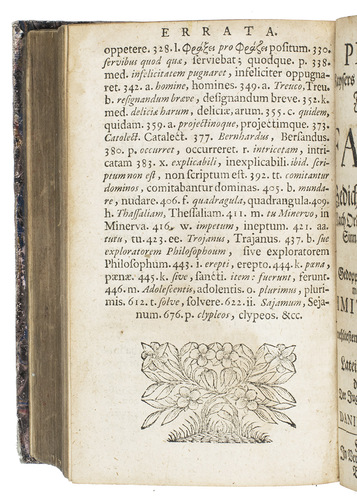 ERRATA.
oppetere. 328. l. Φράξει pro Φράζει positum. 330.
servibus quod quæ, serviebat quodque. p. 338.
med. infelicitatem pugnaret, infeliciter oppugna-
ret. 342. a. homine, homines. 349. a. Treuco, Treu.
b. resignandum bræve, designandum breve. 352. k.
med. deliciæ harum, deliciæ, arum. 355. c. quidem,
quidam. 359. a. projectinoque, projectinque. 373.
Catolect. Catalect. 377. Bernhardus, Bersandus.
380. p. occurret, occurreret. r. intricetam, intri-
catam 383. x. explicabili, inexplicabili. ibid. scri-
ptum non est, non scriptum est. 392. tt. comitantur
dominos, comitabantur dominas. 405. b. munda-
re, nudare. 406. f. quadragula, quadrangula. 409.
h. Thassaliam, Thessaliam. 411. m. tu Minervo, in
Minerva. 416. w. impetum, ineptum. 421. aa.
tutu, tu. 423. ee. Trojanus, Trajanus. 437. b. sue
exploratorem Philosophoum, sive exploratorem
Philosophum. 443. i. erepti, erepto. 444. k. pæna,
pænæ. 445. k. stvi, sancti. item: fuerunt, ferunt.
446. m. Adolescentis, adolentis. o. plurimus, pluri-
mis. 612. t. solve, solvere. 622. ii. Sajamum, Seja-
num. 676. p. clypleos, clypeos. &cc.